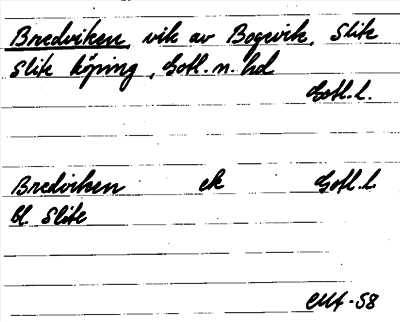 Bredviken, vik av Bogevik, Slite
Slite köping, Gotl. n. hd
Gotl. l.
Bredviken ek Gotl. l.
bl. Slite
-58